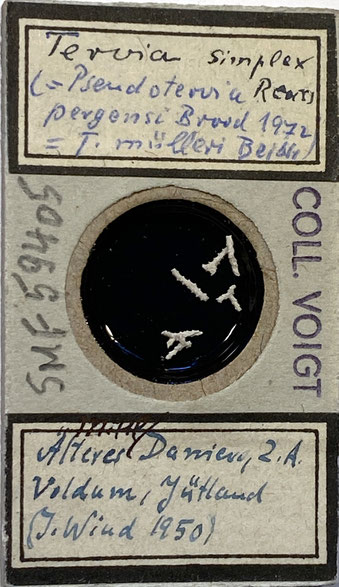 Tervia simplex
(= Pseudotervia Reuss
pergensi Brood 1972
= T. mülleri
SMF 59405
COLL. VOIGT
Älteres Danien, Z.A.
Voldum, Jütland
(J. Wind 1950)